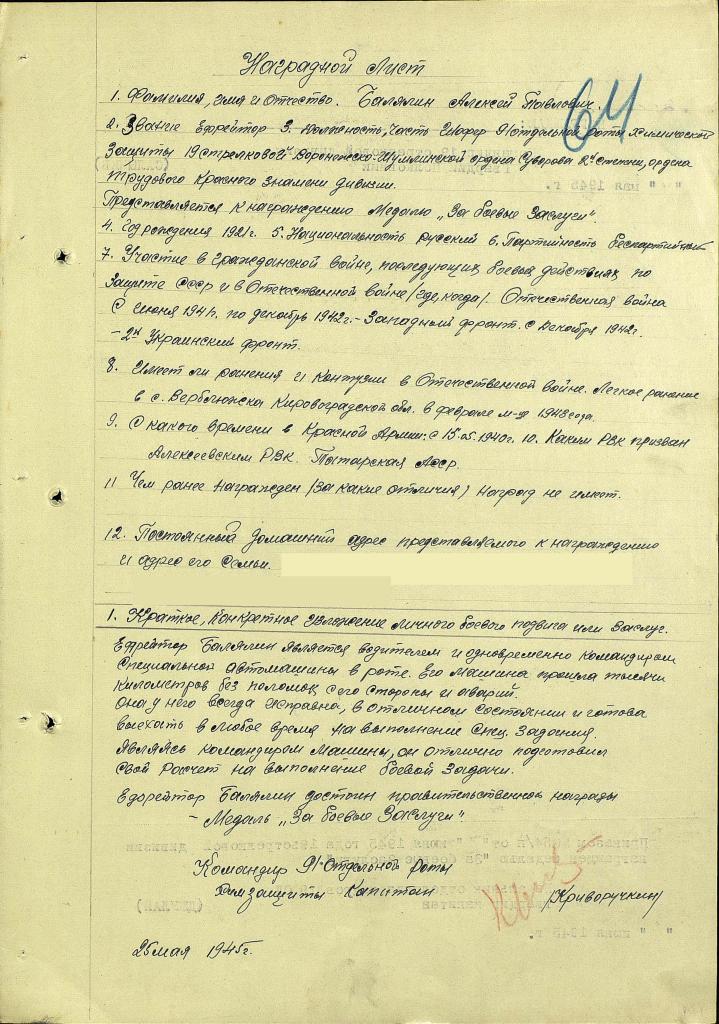 Наградной Лист
64
1. Фамилия, имя и Отчество. Балялин Алексей Павлович.
2. Звание Ефрейтор 3. Должность, часть Шофер 91 отдельной роты химической
Защиты 19 стрелковой Воронежско-Шумлинской ордена Суворова 2й степени, ордена
Трудового Красного знамени дивизии.
Представляется к награждению Медалью „За боевые Заслуги".
4. Год рождения 1921 г. 5. Национальность русский 6. Партийность беспартийный
7. Участие в Гражданской войне, последующих боевых действиях по
Защите СССР и в Отечественной войне /где, когда/. Отечественная война
С июня 1941. по декабрь 1942 г. - Западный фронт. С декабря 1942 г.
- 2й Украинский фронт.
8. Имеет ли ранения и контузии в Отечественной войне. Легкое ранение
в с. Верблюжка Кировоградской обл. в феврале м-це 1943 года.
9. С какого времени в Красной Армии: с 15.05.1940 г. 10. Каким РВК призван
Алексеевским РВК. Татарская АССР.
11 Чем ранее награжден /За какие отличия/ наград не имеет.
12. Постоянный домашний адрес представляемого к награждению
и адрес его семьи.
1. Краткое, конкретное изложение личного боевого подвига или заслуг.
Ефрейтор Балялин является водителем и одновременно командиром
Специальной автомашины в роте. Его машина прошла тысячи
километров без поломок с его стороны и аварий.
Она у него всегда исправна, в отличном состоянии и готова
выехать в любое время на выполнение спец. Задания.
Являясь командиром машины, он отлично подготовил
свой расчет на выполнение боевой Задачи.
Ефрейтор Балялин достоин правительственной награды
- Медаль „За боевые Заслуги".
Командир 91 Отдельной роты
химзащиты Капитан /Криворучкин/
25 мая 1945 г.